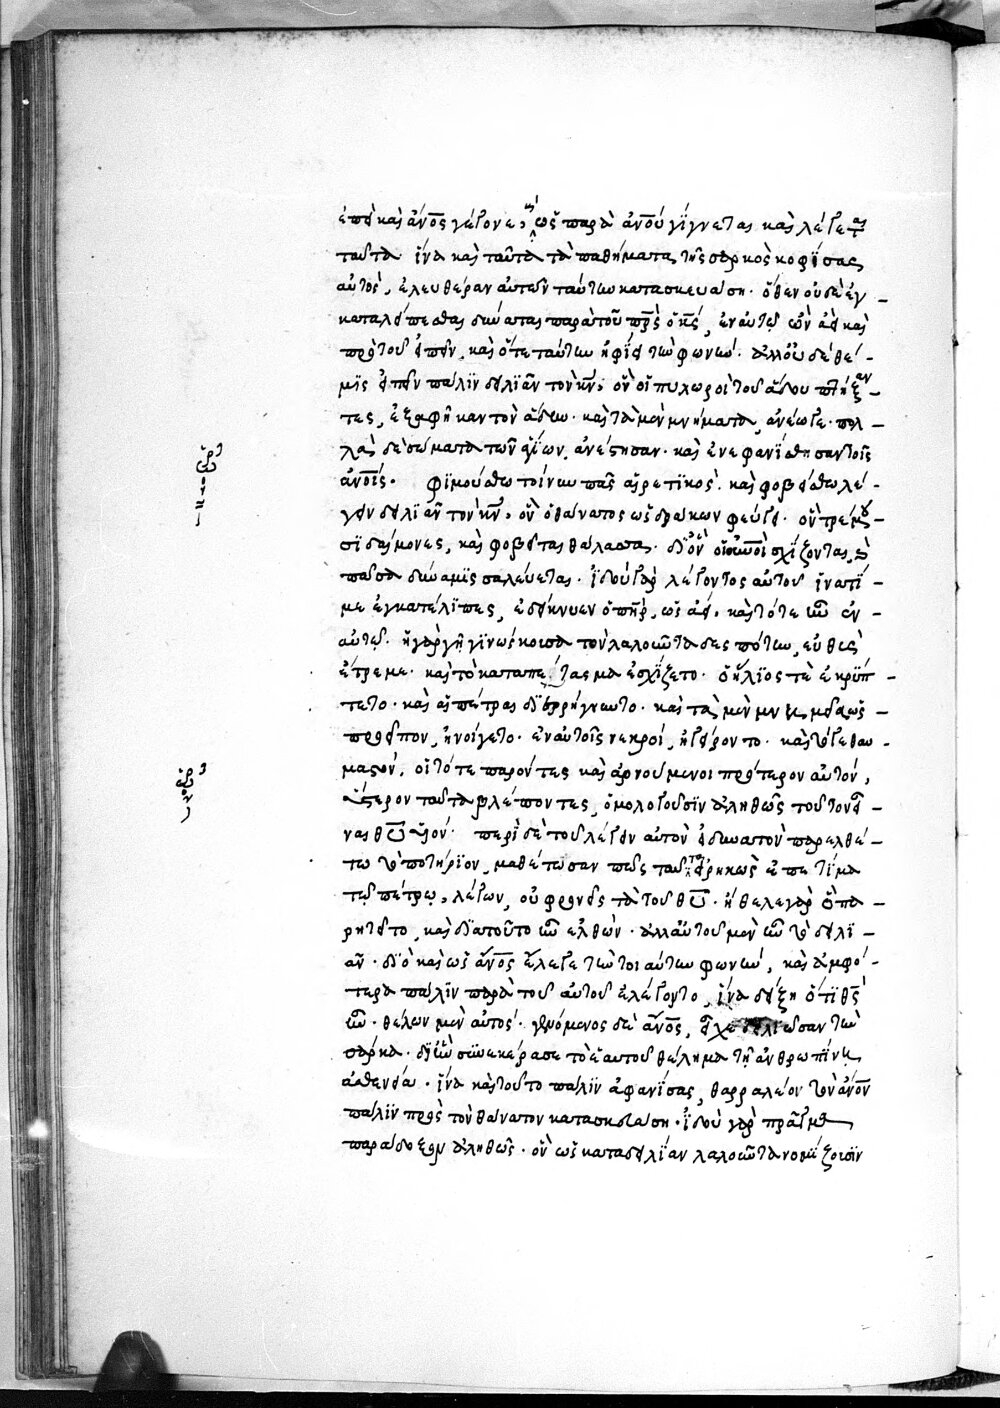 ἐπεὶ καὶ ἄν̅ο̅ς̅ γέγονε, καὶ ὡς παρὰ ἀν̅ο̅υ̅ γίγνεται καὶ λέγεται
ταῦτα ἵνα καὶ ταῦτα τὰ παθήματα τῆς σαρκὸς κουφίσας
αὐτὸς, ἐλευθέραν αὐτῶν ταύτην κατασκευάσῃ. ὅθεν οὐδὲ ἐγ-
καταλείπεσθαι δύναται παρὰ τοῦ π̅ρ̅ς̅ ὁ κ̅ς̅, ἐν αὐτῷ ὢν ἀεὶ καὶ
πρὸ τοῦ εἰπεῖν, καὶ ὅτε ταύτην ἠφίει τὴν φωνήν. ἀλλ' οὐδὲ θέ-
μις εἰπεῖν πάλιν δειλιᾶν τὸν κ̅ν̅, ὃν οἱ πυλωροὶ τοῦ ἅδου πτήξαν-
τες, ἐξαφῆκαν τὸν ἅδην. καὶ τὰ μὲν μνήματα, ἀνέωγε. πολ-
λὰ δὲ σώματα τῶν ἁγίων, ἀνέστησαν. καὶ ἐνεφανίσθησαν τοῖς
ἀν̅ο̅ι̅ς̅. φιμούσθω τοίνυν πᾶς αἱρετικὸς. καὶ φοβείσθω λέ-
γειν δειλιᾶν τὸν κ̅ν̅, ὃν ὁ θάνατος ὡς δράκων φεύγει. ὃν τρέμου-
σι δαίμονες, καὶ φοβεῖται θάλασσα. δι' ὃν οἱ οὐ̅ν̅οὶ σχίζονται, καὶ
πᾶσαι δυνάμεις σαλεύεται. ἰδοὺ γὰρ λέγοντος αὐτοῦ ἱνατί-
με ἐγκατέλιπες, ἐδείκνυεν ὁ π̅η̅ρ̅, ὡς ἀεὶ καὶ τότε ὢν ἐν
αὐτῷ. ἡ γὰρ γῆ γινώσκουσα τὸν λαλοῦντα δεσπότην, εὐθὺς
ἔτρεμε. καὶ τὸ καταπέτασμα ἐσχίζετο. ὁ ἥλιός τε ἐκρύπ-
τετο. καὶ αἱ πέτραι διερρήγνυντο. καὶ τὰ μὲν μνημεῖα ὡς
προεῖπον, ἠνοίγετο. ἐν αὐτοῖς νεκροί, ἠγείροντο. καὶ τό γε θαυ-
μαστόν, οἱ τότε παρόντες καὶ ἀρνούμενοι πρότερον αὐτόν,
ὕστερον ταῦτα βλέποντες, ὁμολογοῦσιν ἀληθῶς τοῦτον εἶ-
ναι θ̅υ̅ υἱόν. περὶ δὲ τοῦ λέγειν αὐτὸν εἰ δυνατὸν παρελθέ-
τω τὸ ποτήριον, μαθέτωσαν πῶς ταῦτα εἰρηκὼς ἐπετίμα
τῷ πέτρῳ, λέγων, οὐ φρονεῖς τὰ τοῦ θ̅υ̅. ἤθελε γὰρ ὃ πα-
ρῃτεῖτο, καὶ διατοῦτο ἦν ἐλθών. ἀλλ' αὐτοῦ μὲν ἦν τὸ δειλι-
ᾶν. διὸ καὶ ὡς ἄν̅ο̅ς̅ ἔλεγε τὴν τοιαύτην φωνήν, καὶ ἀμφό-
τερα πάλιν παρὰ τοῦ αὐτοῦ ἐλέγοντο, ἵνα δείξῃ ὅτι θ̅ς̅
ἦν. θέλων μὲν αὐτὸς. γενόμενος δὲ ἄν̅ο̅ς̅, εἶχε δειλιῶσαν τὴν
σάρκα. δι' ἣν συνεκέρασε τὸ ἑαυτοῦ θέλημα τῇ ἀνθρωπίνῃ
ἀσθενείᾳ. ἵνα καὶ τοῦτο πάλιν ἀφανίσας, θαρραλέον τὸν ἄν̅ο̅ν̅
πάλιν πρὸς τὸν θάνατον κατασκευάσῃ. ἰδοὺ γὰρ πρᾶγμα
παράδοξον ἀληθῶς. ὃν ὡς καταδειλίαν λαλοῦντα νομίζουσιν